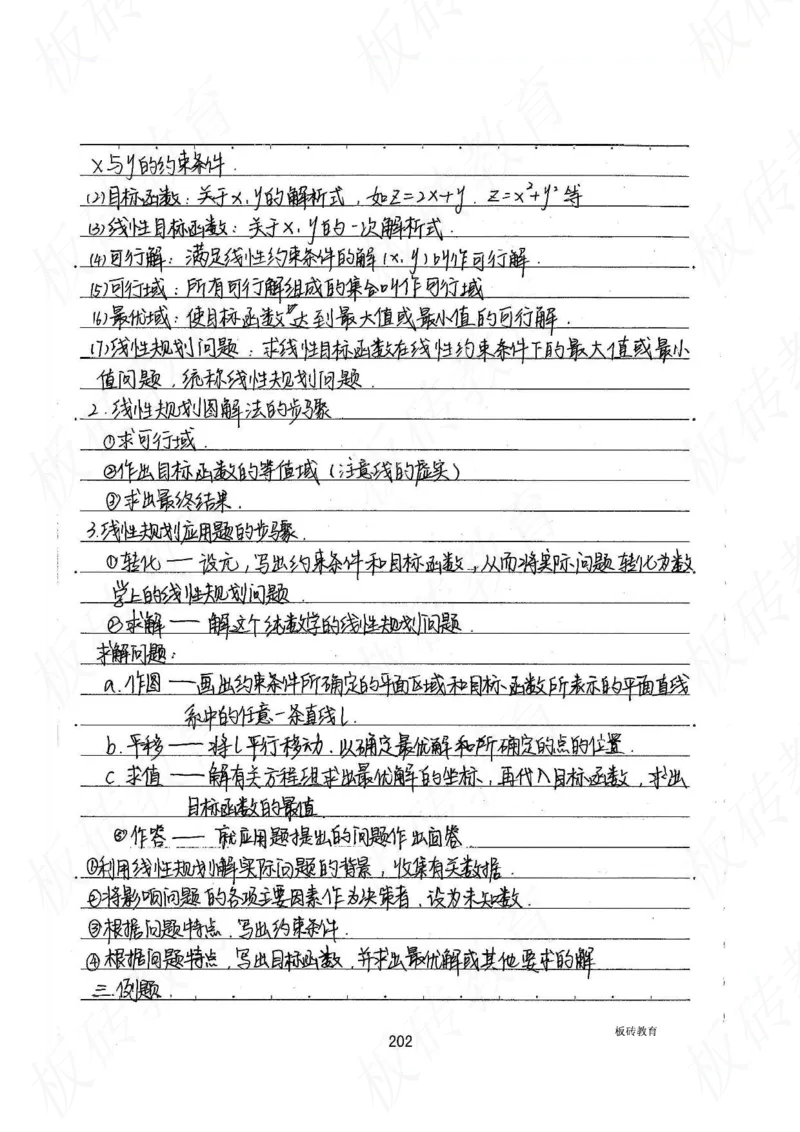 x与y的约束条件.
(2)目标函数：关于x,y的解析式，如z=2x+y. z=x²+y²等
(3)线性目标函数：关于x,y的一次解析式.
(4)可行解：满足线性约束条件的解(x,y)叫作可行解.
(5)可行域：所有可行解组成的集合叫作可行域
(6)最优域：使目标函数达到最大值或最小值的可行解.
(7)线性规划问题：求线性目标函数在线性约束条件下的最大值或最小
值问题，统称线性规划问题.
2.线性规划图解法的步骤
①求可行域.
②作出目标函数的等值域(注意线的虚实)
③求出最终结果.
3.线性规划应用题的步骤.
①转化——设元，写出约束条件和目标函数，从而将实际问题转化为数
学上的线性规划问题.
②求解——解这个纯数学的线性规划问题.
求解问题：
a.作图——画出约束条件所确定的平面区域和目标函数所表示的平面直线
系中的任意一条直线l.
b.平移——将l平行移动.以确定最优解和所确定的点的位置.
c 求值——解有关方程组求出最优解的坐标，再代入目标函数，求出
目标函数的最值.
③作答——就应用题提出的问题作出回答
①利用线性规划解实际问题的背景，收集有关数据.
②将影响问题的各项主要因素作为决策者，设为未知数.
③根据问题特点，写出约束条件.
④根据问题特点，写出目标函数，并求出最优解或其他要求的解
三.例题.
202
板砖教育